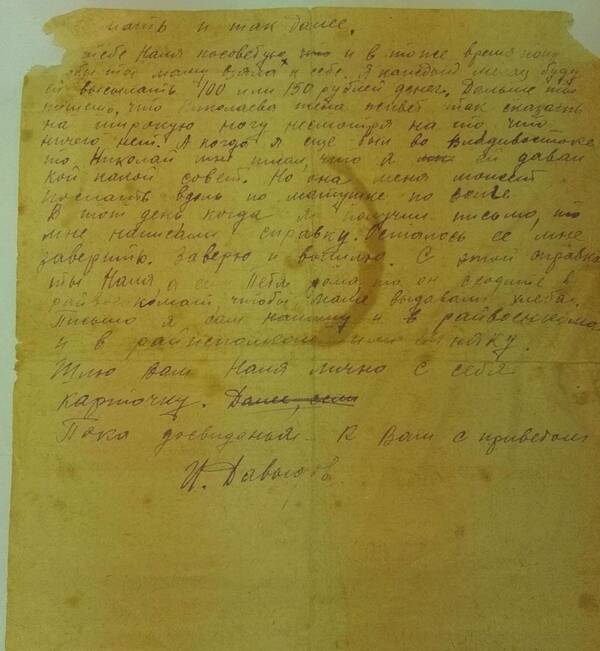 мать и так далее.
тебе Наля посоветую и в тоже время
бы ты маму взяла к себе. Я каждый месяц буду
ей высылать 100 или 150 рублей денег. Дальше ты
пишешь, что Николаева жена живет так сказать
на широкую ногу несмотря на то что
ничего нет. А когда я еще был во Владивостоке
то Николай мне писал, что я ей давай
кой какой совет. Но она меня может
послать вдоль по матушке по волге
В тот день когда я получил письмо, то
мне написали справку. Осталось ее мне
заверить. Заверю и вышлю. С этой справкой
ты Наля, а Петя дома, то он сходите в
райвоенкомат, чтобы маме выдавали хлеба.
Письмо я сам напишу и в райвоенкома
и в райисполком
Шлю Вам Наля лично с себя
карточку. Далее, если
Пока досвиданья. К Вам с приветом
Н. Давыдов